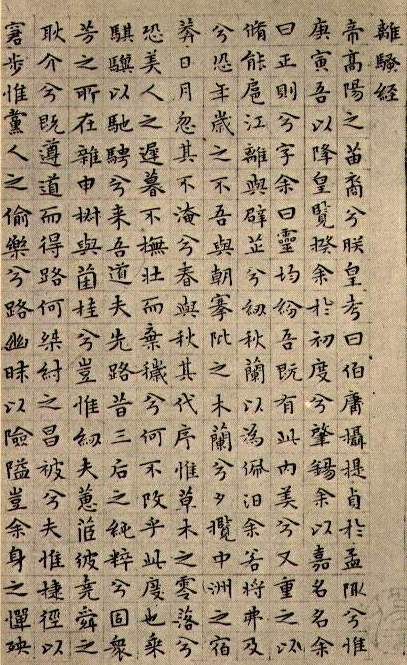 離騷經
帝高陽之苗裔兮朕皇考曰伯庸攝提貞於孟陬兮惟
庚寅吾以降皇覽揆余於初度兮肇錫余以嘉名名余
曰正則兮字余曰靈均紛吾既有此內美兮又重之以
脩能扈江離與辟芷兮紉秋蘭以為佩汩余若將弗及
兮恐年歲之不吾與朝搴阰之木蘭兮夕攬中洲之宿
莽日月忽其不淹兮春與秋其代序惟草木之零落兮
恐美人之遲暮不撫壯而棄穢兮何不改乎此度也乘
騏驥以馳騁兮来吾道夫先路昔三后之純粹兮固衆
芳之所在雜申椒與菌桂兮豈惟紉夫蕙茝彼堯舜之
耿介兮既遵道而得路何桀紂之昌被兮夫惟捷徑以
窘步惟黨人之偷樂兮路幽昧以險隘豈余身之憚殃